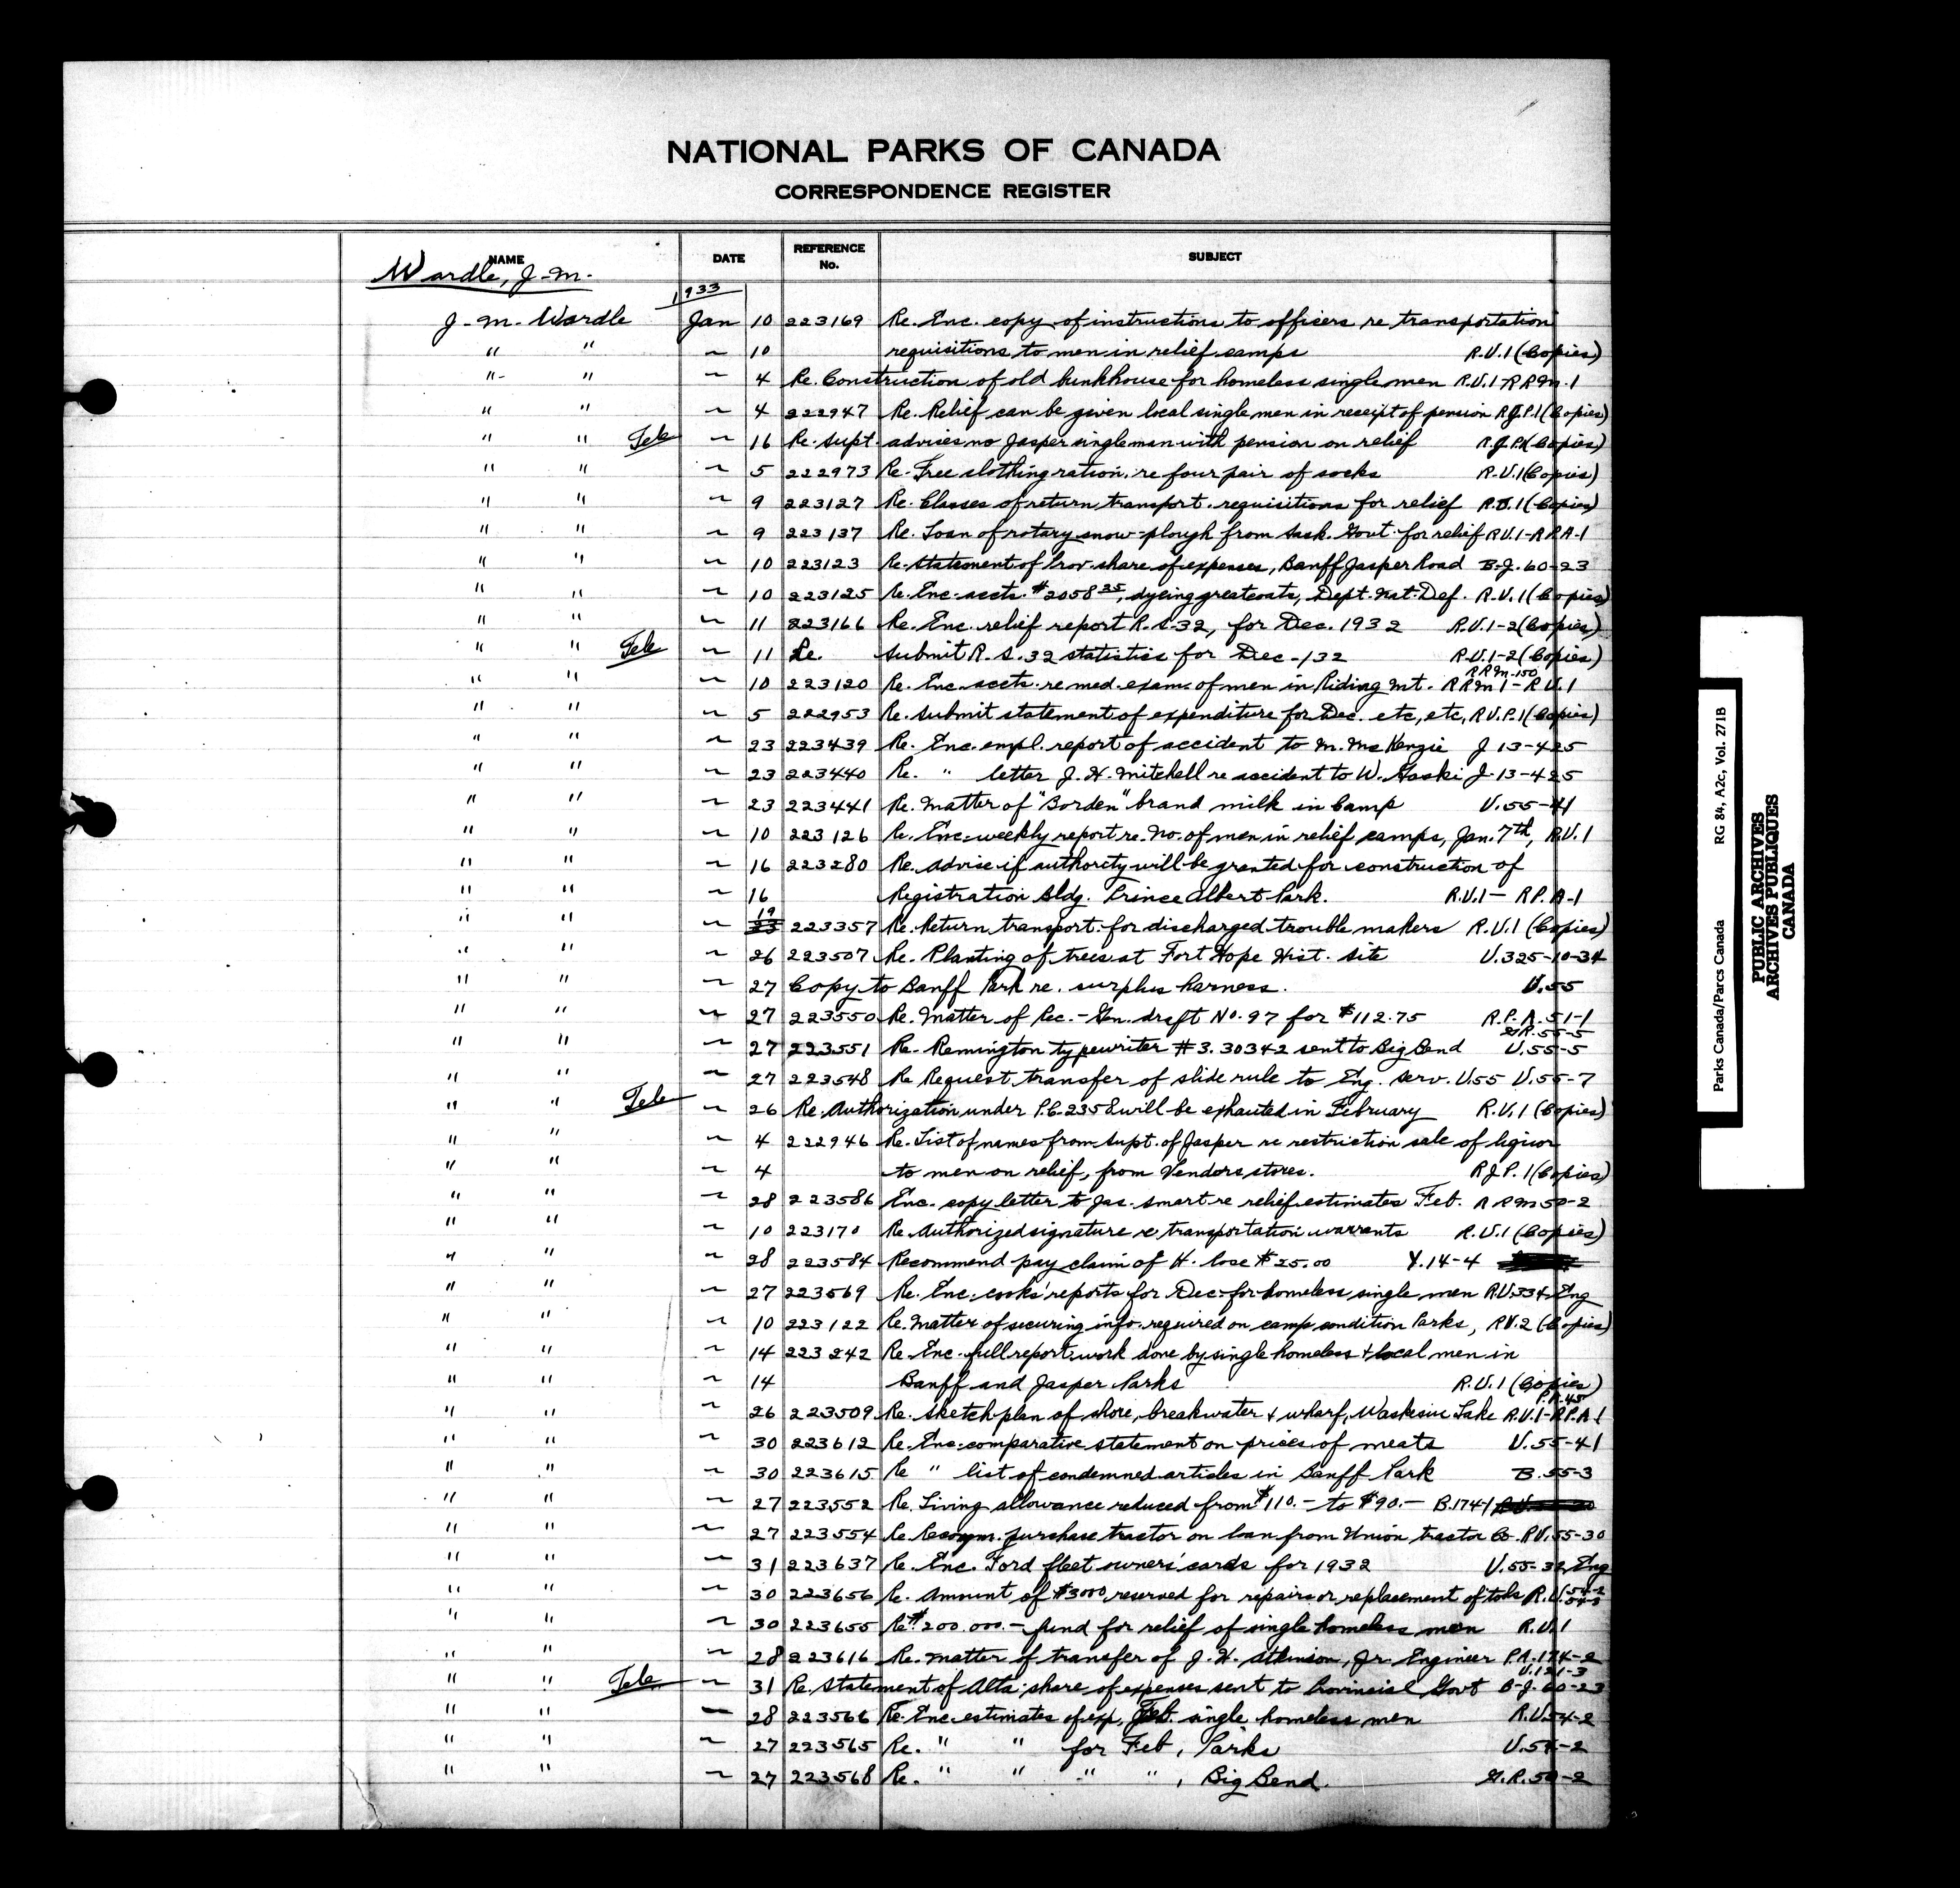 NATIONAL PARKS OF CANADA
CORRESPONDENCE REGISTER
NAME DATE REFERENCE No. SUBJECT
Wardle, J.M.
1933
J.M. Wardle Jan 10 223169 Re. Enc. copy of instructions to officers re transportation
" " ~ 10 requisitions to men in relief camps R.U.1 (Copies)
" " ~ 4 Re. Construction of old bunkhouse for homeless single men R.U.1-RRM.1
" " ~ 4 222947 Re. Relief can be given local single men in receipt of pension R.J.P.1 (Copies)
" " Tele ~ 16 Re. Supt. advises no Jasper single man with pension on relief R.J.P.1 (Copies)
" " ~ 5 222973 Re. Free clothing ration. re four pair of socks R.U.1 (Copies)
" " ~ 9 223127 Re. Classes of return transport. requisitions for relief R.U.1 (Copies)
" " ~ 9 223137 Re. Loan of rotary snow-plough from Sask. Govt. for relief R.U.1-R.P.A-1
" " ~ 10 223123 Re. Statement of Prov. share of expenses, Banff Jasper Road B-J.60-23
" " ~ 10 223125 Re. Enc. accts. $2058 35, dyeing greatcoats, Dept. Nat. Def. R.U.1 (Copies)
" " ~ 11 223166 Re. Enc. relief report R.S-32, for Dec. 1932 R.U.1-2 (Copies)
" " Tele ~ 11 Re. Submit R.S.32 statistics for Dec-132 R.U.1-2 (Copies)
" " ~ 10 223120 Re. Enc. accts. re med. exam. of men in Riding Mt. RRM1-R.U.1 RRM-150
" " ~ 5 222953 Re. Submit statement of expenditure for Dec. etc, etc, R.U.P.1 (Copies)
" " ~ 23 223439 Re. Enc. empl. report of accident to M. McKenzie J 13-425
" " ~ 23 223440 Re. " letter J.H. Mitchell re accident to W. Gaski J-13-425
" " ~ 23 223441 Re. Matter of "Borden" brand milk in Camp U.55-41
" " ~ 10 223126 Re. Enc. weekly report re. No. of men in relief camps, Jan. 7th, R.U.1
" " ~ 16 223280 Re. Advise if authority will be granted for construction of
" " ~ 16 Registration Bldg. Prince Albert Park. R.U.1- RP.A-1
" " ~ 19 223357 Re. Return transport. for discharged trouble makers R.U.1 (Copies)
" " ~ 26 223507 Re. Planting of trees at Fort Hope Hist. Site U.325-10-34
" " ~ 27 Copy to Banff Park re. surplus harness. U.55
" " ~ 27 223550 Re. Matter of Rec.-Gen. draft No. 97 for $112.75 R.P.A.51-1
" " ~ 27 223551 Re. Remington typewriter #3.30342 sent to Big Bend U.55-5 G.R.55-5
" " ~ 27 223548 Re Request transfer of slide rule to Eng. Serv. U.55 U.55-7
" " Tele ~ 26 Re. Authorization under P.C.2358 will be exhausted in February R.U.1 (Copies)
" " ~ 4 222946 Re. List of names from Supt. of Jasper re restriction sale of liquor
" " ~ 4 to men on relief, from Vendors stores. R.J.P.1 (Copies)
" " ~ 28 223586 Enc. copy letter to Jas. Smart re relief estimates Feb. RRM50-2
" " ~ 10 223170 Re. Authorized signature re transportation warrants R.U.1 (Copies)
" " ~ 28 223584 Recommend pay claim of H. $25.00 Y.14-4
" " ~ 27 223569 Re. Enc. cooks' reports for Dec. for homeless single men R.U.334, Eng
" " ~ 10 223122 Re. Matter of securing info. required on camp condition Parks, R.U.2 (Copies)
" " ~ 14 223242 Re. Enc. full report work done by single homeless + local men in
" " ~ 14 Banff and Jasper Parks R.U.1 (Copies)
" " ~ 26 223509 Re. Sketch plan of shore, breakwater + wharf, Waskesiu Lake R.U.1-R.P.A.1 P.A.45
" " ~ 30 223612 Re. Enc. comparative statement on prices of meats U.55-41
" " ~ 30 223615 Re " list of condemned articles in Banff Park B.55-3
" " ~ 27 223552 Re. Living allowance reduced from $110.- to $90.- B.174-1
" " ~ 27 223554 Re Recomm. purchase tractor on loan from Union tractor Co. R.U.55-30
" " ~ 31 223637 Re. Enc. Ford fleet owners' cards for 1932 U.55-32, Eng
" " ~ 30 223656 Re. Amount of $3000 reserved for repairs or replacement of tools R.U.
" " ~ 30 223655 Re $200.000.- fund for relief of single homeless men R.U.1
" " ~ 28 223616 Re. Matter of transfer of J.H. Atkinson, Jr. Engineer P.A.174-2
" " Tele ~ 31 Re. Statement of Alta. share of expenses sent to Provincial Govt B-J.60-23 U.121-3
" " ~ 28 223566 Re. Enc. estimates of exp. Feb. single homeless men R.U.54-2
" " ~ 27 223565 Re. " " for Feb, Parks U.54-2
" " ~ 27 223568 Re. " " " ", Big Bend. G.R.50-2
Parks Canada/Parcs Canada RG 84, A2c, Vol. 271B
PUBLIC ARCHIVES
ARCHIVES PUBLIQUES
CANADA